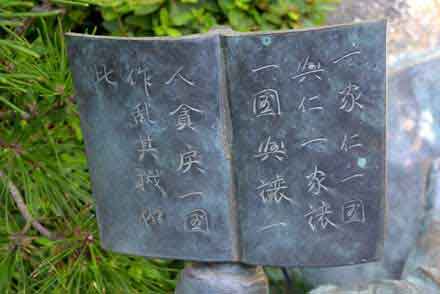 一家仁一國
興仁一家讓
一國興讓一
人貪戻一國
作亂其機如
此